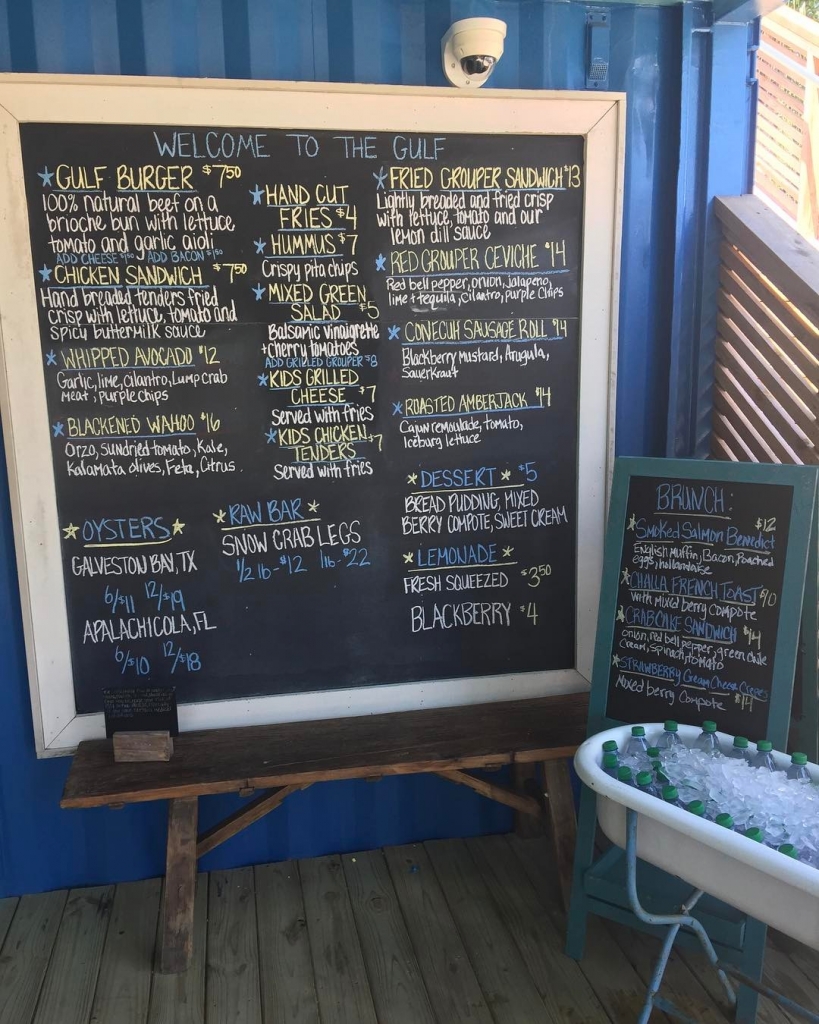 WELCOME TO THE GULF
GULF BURGER $7.50
100% natural beef on a
brioche bun with lettuce,
tomato and garlic aioli
ADD CHEESE ADD BACON
CHICKEN SANDWICH $7.50
Hand breaded tenders fried
crisp with lettuce, tomato and
spicy buttermilk sauce
WHIPPED AVOCADO $12
Garlic, lime, cilantro, Lump crab
meat, purple chips
BLACKENED WAHOO $16
Orzo, sundried tomato, Kale,
Kalamata olives, Feta, Citrus.
HAND CUT
FRIES $4
HUMMUS $7
Crispy pita chips
MIXED GREEN
SALAD $5
Balsamic vinaigrette
+ cherry tomatoes
ADD GRILLED GROUPER $8
KIDS GRILLED
CHEESE $7
Served with fries
KIDS CHICKEN
TENDERS $7
Served with fries
FRIED GROUPER SANDWICH $13
Lightly breaded and fried crisp
with lettuce, tomato and our
lemon dill sauce
RED GROUPER CEVICHE $14
Red bell pepper, onion, Jalapeno,
lime + tequila, cilantro, purple Chips
CONECUH SAUSAGE ROLL $14
Blackberry Mustard, Arugula,
Sauerkraut
ROASTED AMBERJACK $14
Cajun remoulade, tomato,
Iceburg lettuce
OYSTERS
GALVESTON BAY, TX
6/$11 12/$19
APALACHICOLA, FL
6/$10 12/$18
RAW BAR
SNOW CRAB LEGS
1/2 lb - $12 1lb - $22
DESSERT $5
BREAD PUDDING, MIXED
BERRY COMPOTE, SWEET CREAM
LEMONADE
FRESH SQUEEZED $3.50
BLACKBERRY $4
BRUNCH:
$12
Smoked Salmon Benedict
English Muffin, Bacon, Poached
eggs, hollandaise
CHALLA FRENCH TOAST $10
with mixed berry compote
CRABCAKE SANDWICH $14
onion, red bell pepper, green chile
Cream, spinach, tomato
STRAWBERRY Cream Cheese Crepes
Mixed berry Compote $14